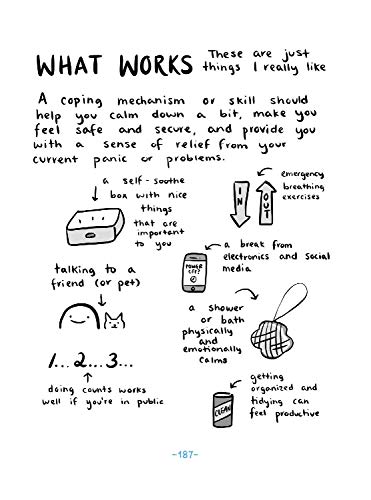 WHAT WORKS
These are just
things I really like
A coping mechanism or skill should
help you calm down a bit, make you
feel safe and secure, and provide you
with a sense of relief from your
current panic or problems.
a self-soothe
box with nice
things
that are
important
to you
IN
OUT
emergency
breathing
exercises
a break from
electronics and social
media
POWER
OFF?
talking to a
friend (or pet)
a shower
or bath
physically
and
emotionally
calms
1... 2... 3...
doing counts works
well if you're in public
getting
organized and
tidying can
feel productive
CLEAN
-187-